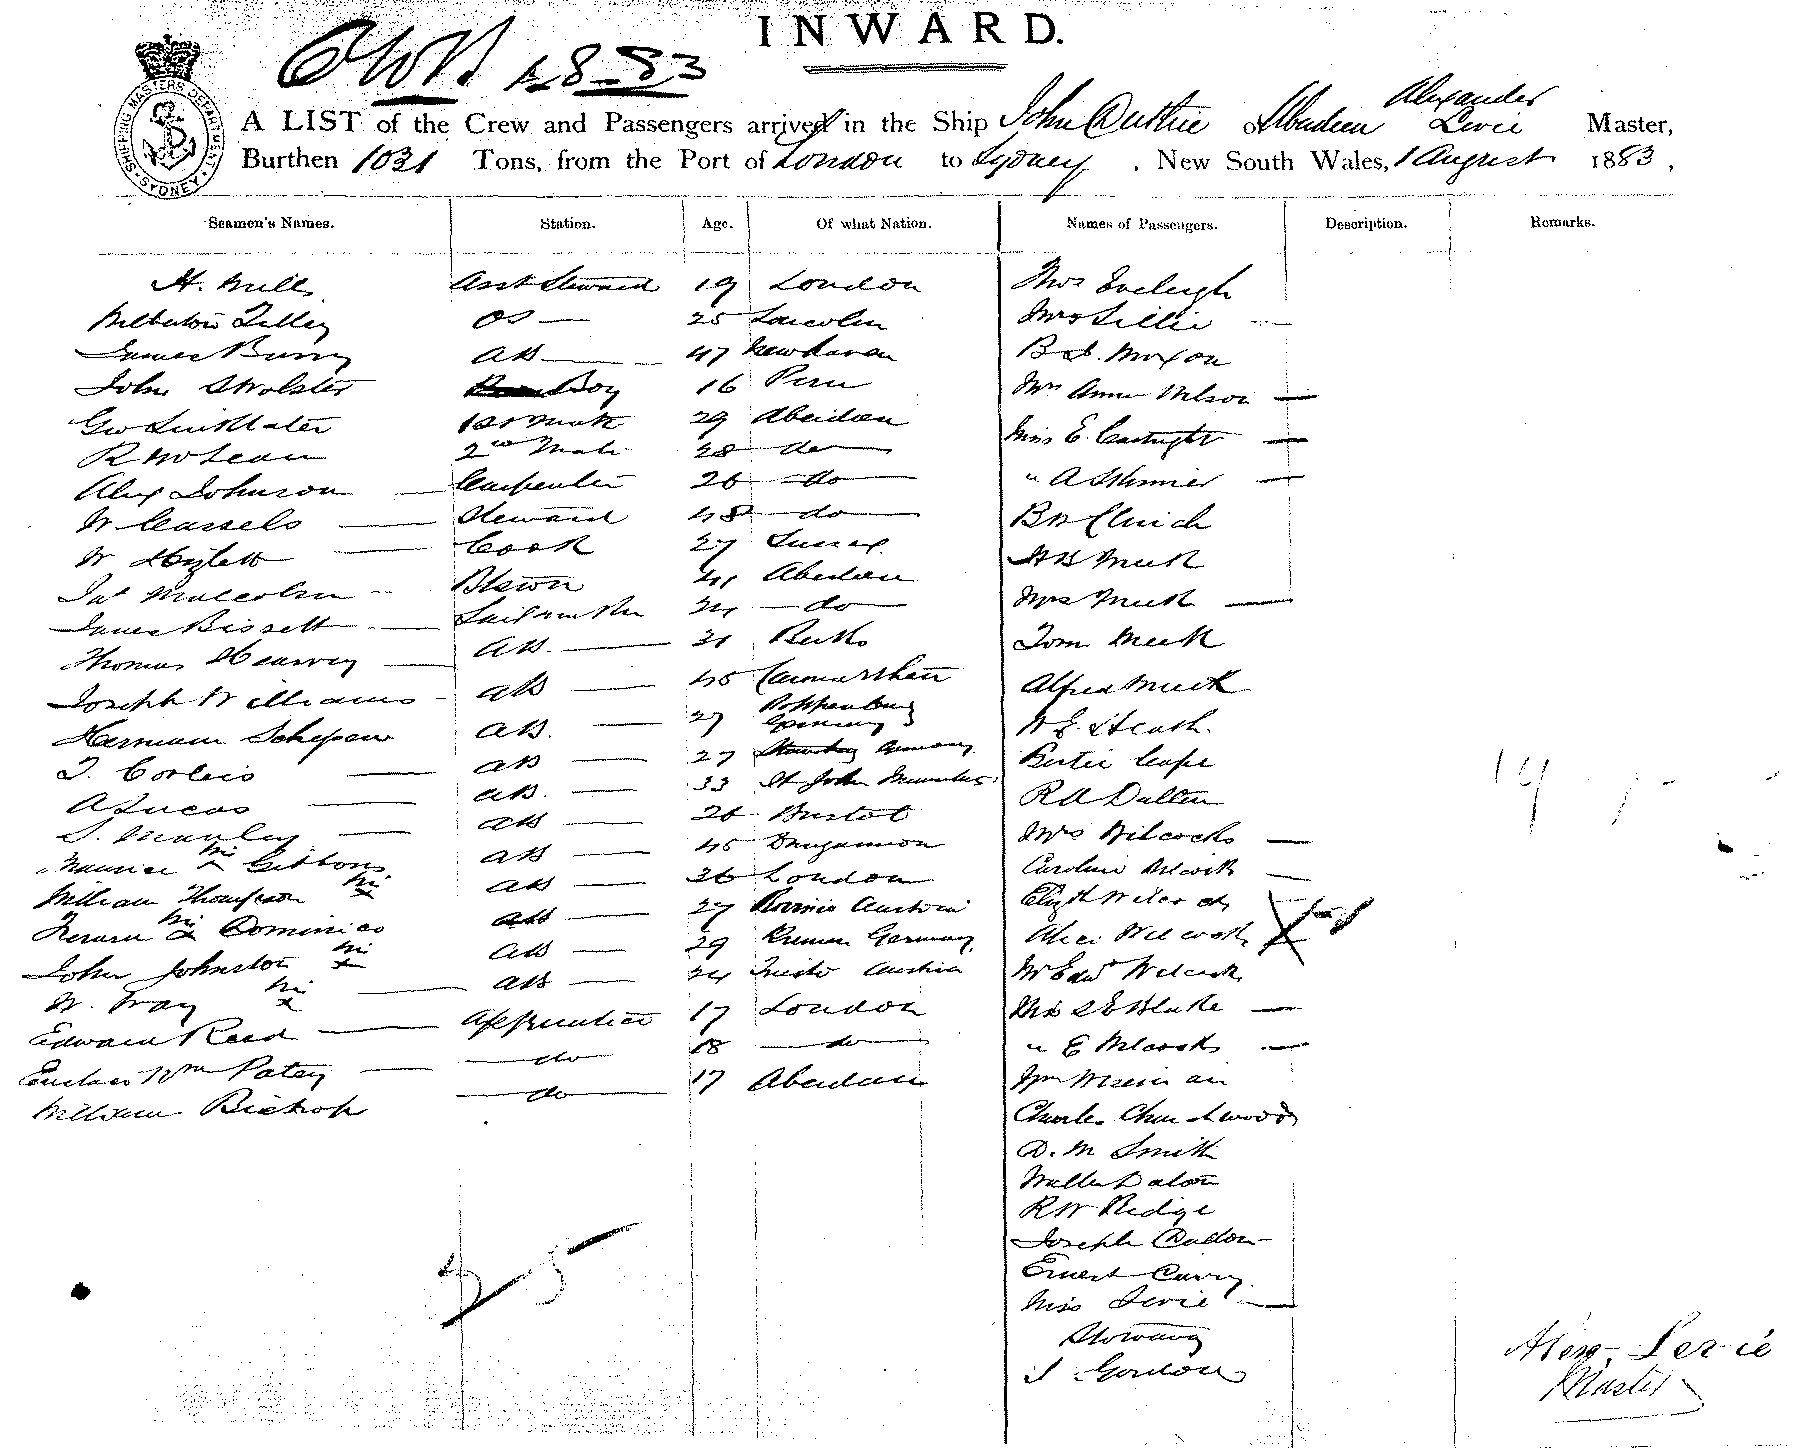 INWARD.
1.8.83
SHIPPING MASTERS DEPARTMENT SYDNEY
Alexander
A LIST of the Crew and Passengers arrived in the Ship John Duthie of Aberdeen Levie Master,
Burthen 1031 Tons, from the Port of London to Sydney, New South Wales, 1 August 1883,
Seamen's Names. Station. Age. Of what Nation. Names of Passengers. Description. Remarks.
H. Mills Asst Steward 19 London Mrs Eveleigh
Tilley OS 25 Lincoln Mrs Lillie
James Burry AB 47 Newhaven B J. Moxon
John Boy 16 Peru Mrs Anne Wilson
Geo Linklater 1st Mate 29 Aberdeen Miss E. Cartwright
R McLean 2nd Mate 28 do " A Skinner
Alex Johnson Carpenter 26 do
W Cassels Steward 48 do H B Meek
W Cook 27 Sussex Mrs Meek
Jas Malcolm Bswn 41 Aberdeen Tom Meek
James Bissett Sailmaker 24 do Alfred Meek
Thomas Hearvey AB 31 Bucks W E Heath.
Joseph Williams AB 45 Carmarthen Bertie Cape
Hermann Schepen AB. 27 Poppenburg Germany R A Dalten
T. Corleis AB 27 Germany Mrs Wilcocks
A Lucas AB. 33 St John Caroline Wilcocks
S. Manley AB 26 Bristol Elizth Wilcocks
Maurice Gibbons AB 45 Dungannon Alice Wilcocks
William Thompson AB 36 London Mr Edwd Wilcocks
Dominico AB 27 Austria Miss S E Blake
John Johnston AB 29 Bremen Germany " E Wilcocks
W. Gray AB 24 Triesto Austria Wm Wiseman
Edward Read Apprentice 17 London Charles
Wm Patey do 18 do D. M Smith
William Bishop do 17 Aberdeen Walter Dalton
R W Ridge
Joseph
Ernest Curry
Miss Levie
Stowaway
J Gordon
25
19
Alexr Levie
Master